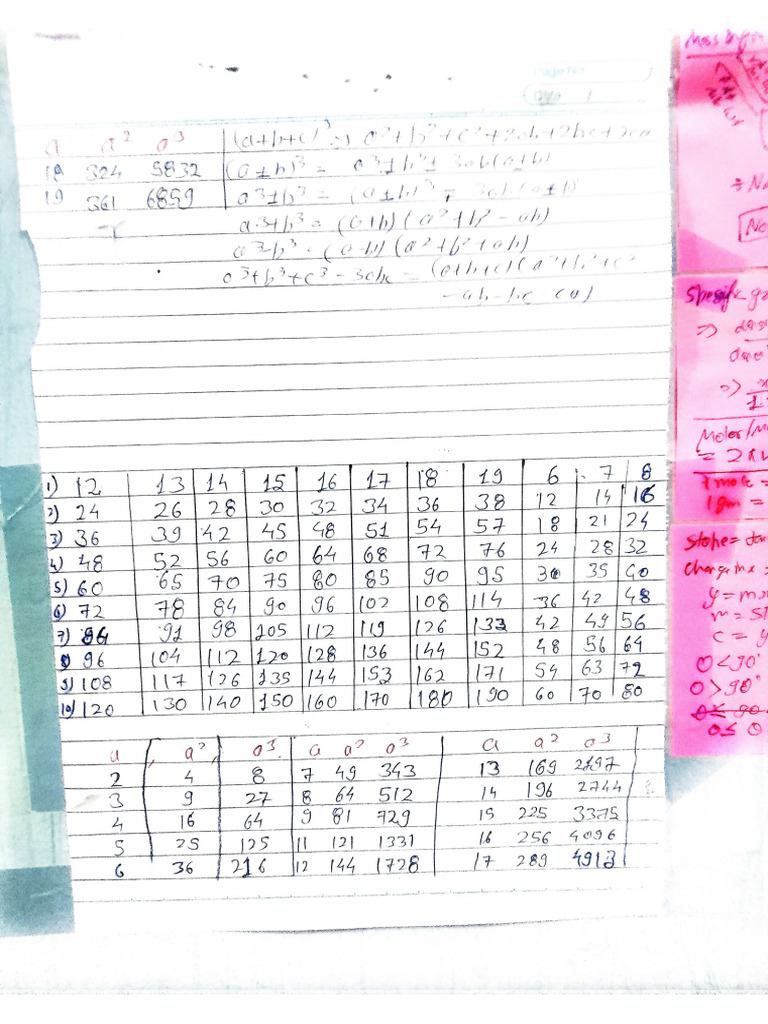 Page No
Date
a a² a³
18 324 5832
19 361 6859
(a+b+c)² => a²+b²+c²+2ab+2bc+2ca
(a+b)³ = a³+b³+3ab(a+b)
a³+b³ = (a+b)³ - 3ab(a+b)
a³+b³ = (a+b) (a²+b²-ab)
a³-b³ = (a-b) (a²+b²+ab)
a³+b³+c³-3abc = (a+b+c)(a²+b²+c²
-ab-bc-ca)
1) 12 13 14 15 16 17 18 19 6 7 8
2) 24 26 28 30 32 34 36 38 12 14 16
3) 36 39 42 45 48 51 54 57 18 21 24
4) 48 52 56 60 64 68 72 76 24 28 32
5) 60 65 70 75 80 85 90 95 30 35 40
6) 72 78 84 90 96 102 108 114 36 42 48
7) 84 91 98 105 112 119 126 133 42 49 56
8) 96 104 112 120 128 136 144 152 48 56 64
9) 108 117 126 135 144 153 162 171 54 63 72
10) 120 130 140 150 160 170 180 190 60 70 80
a a² a³ a a² a³ a a² a³
2 4 8 7 49 343 13 169 2197
3 9 27 8 64 512 14 196 2744
4 16 64 9 81 729 15 225 3375
5 25 125 11 121 1331 16 256 4096
6 36 216 12 144 1728 17 289 4913
Mass
Spesific
=>
=>
Moler/
= 2 x
1 mole =
1 gm =
Slope =
y = m
m =
c = y
θ<90°
θ>90°